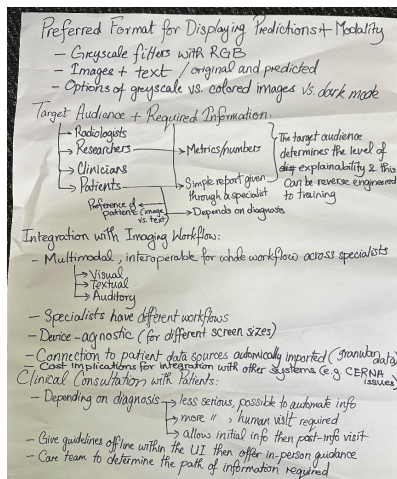 Preferred Format for Displaying Predictions + Modality
- Greyscale filters with RGB
- Images + text / original and predicted
- Options of greyscale vs. colored images vs. dark mode
Target Audience + Required Information:
→ Radiologists
→ Researchers
→ Clinicians
→ Patients
→ Metrics/numbers
→ Simple report given through a specialist
→ Depends on diagnosis
Preference of patient (image vs. text)
The target audience
determines the level of
explainability & this
can be reverse engineered
to training
Integration with Imaging Workflow:
- Multimodal, interoperable for whole workflow across specialists
→ Visual
→ Textual
→ Auditory
- Specialists have different workflows
- Device-agnostic (for different screen sizes)
- Connection to patient data sources automically imported (granular data)
- Cost implications for integration with other systems (e.g. CERNA issues)
Clinical Consultation with Patients:
- Depending on diagnosis → less serious, possible to automate info
→ more " , human visit required
→ allow initial info then post-info visit
- Give guidelines offline within the UI then offer in-person guidance
- Care team to determine the path of information required